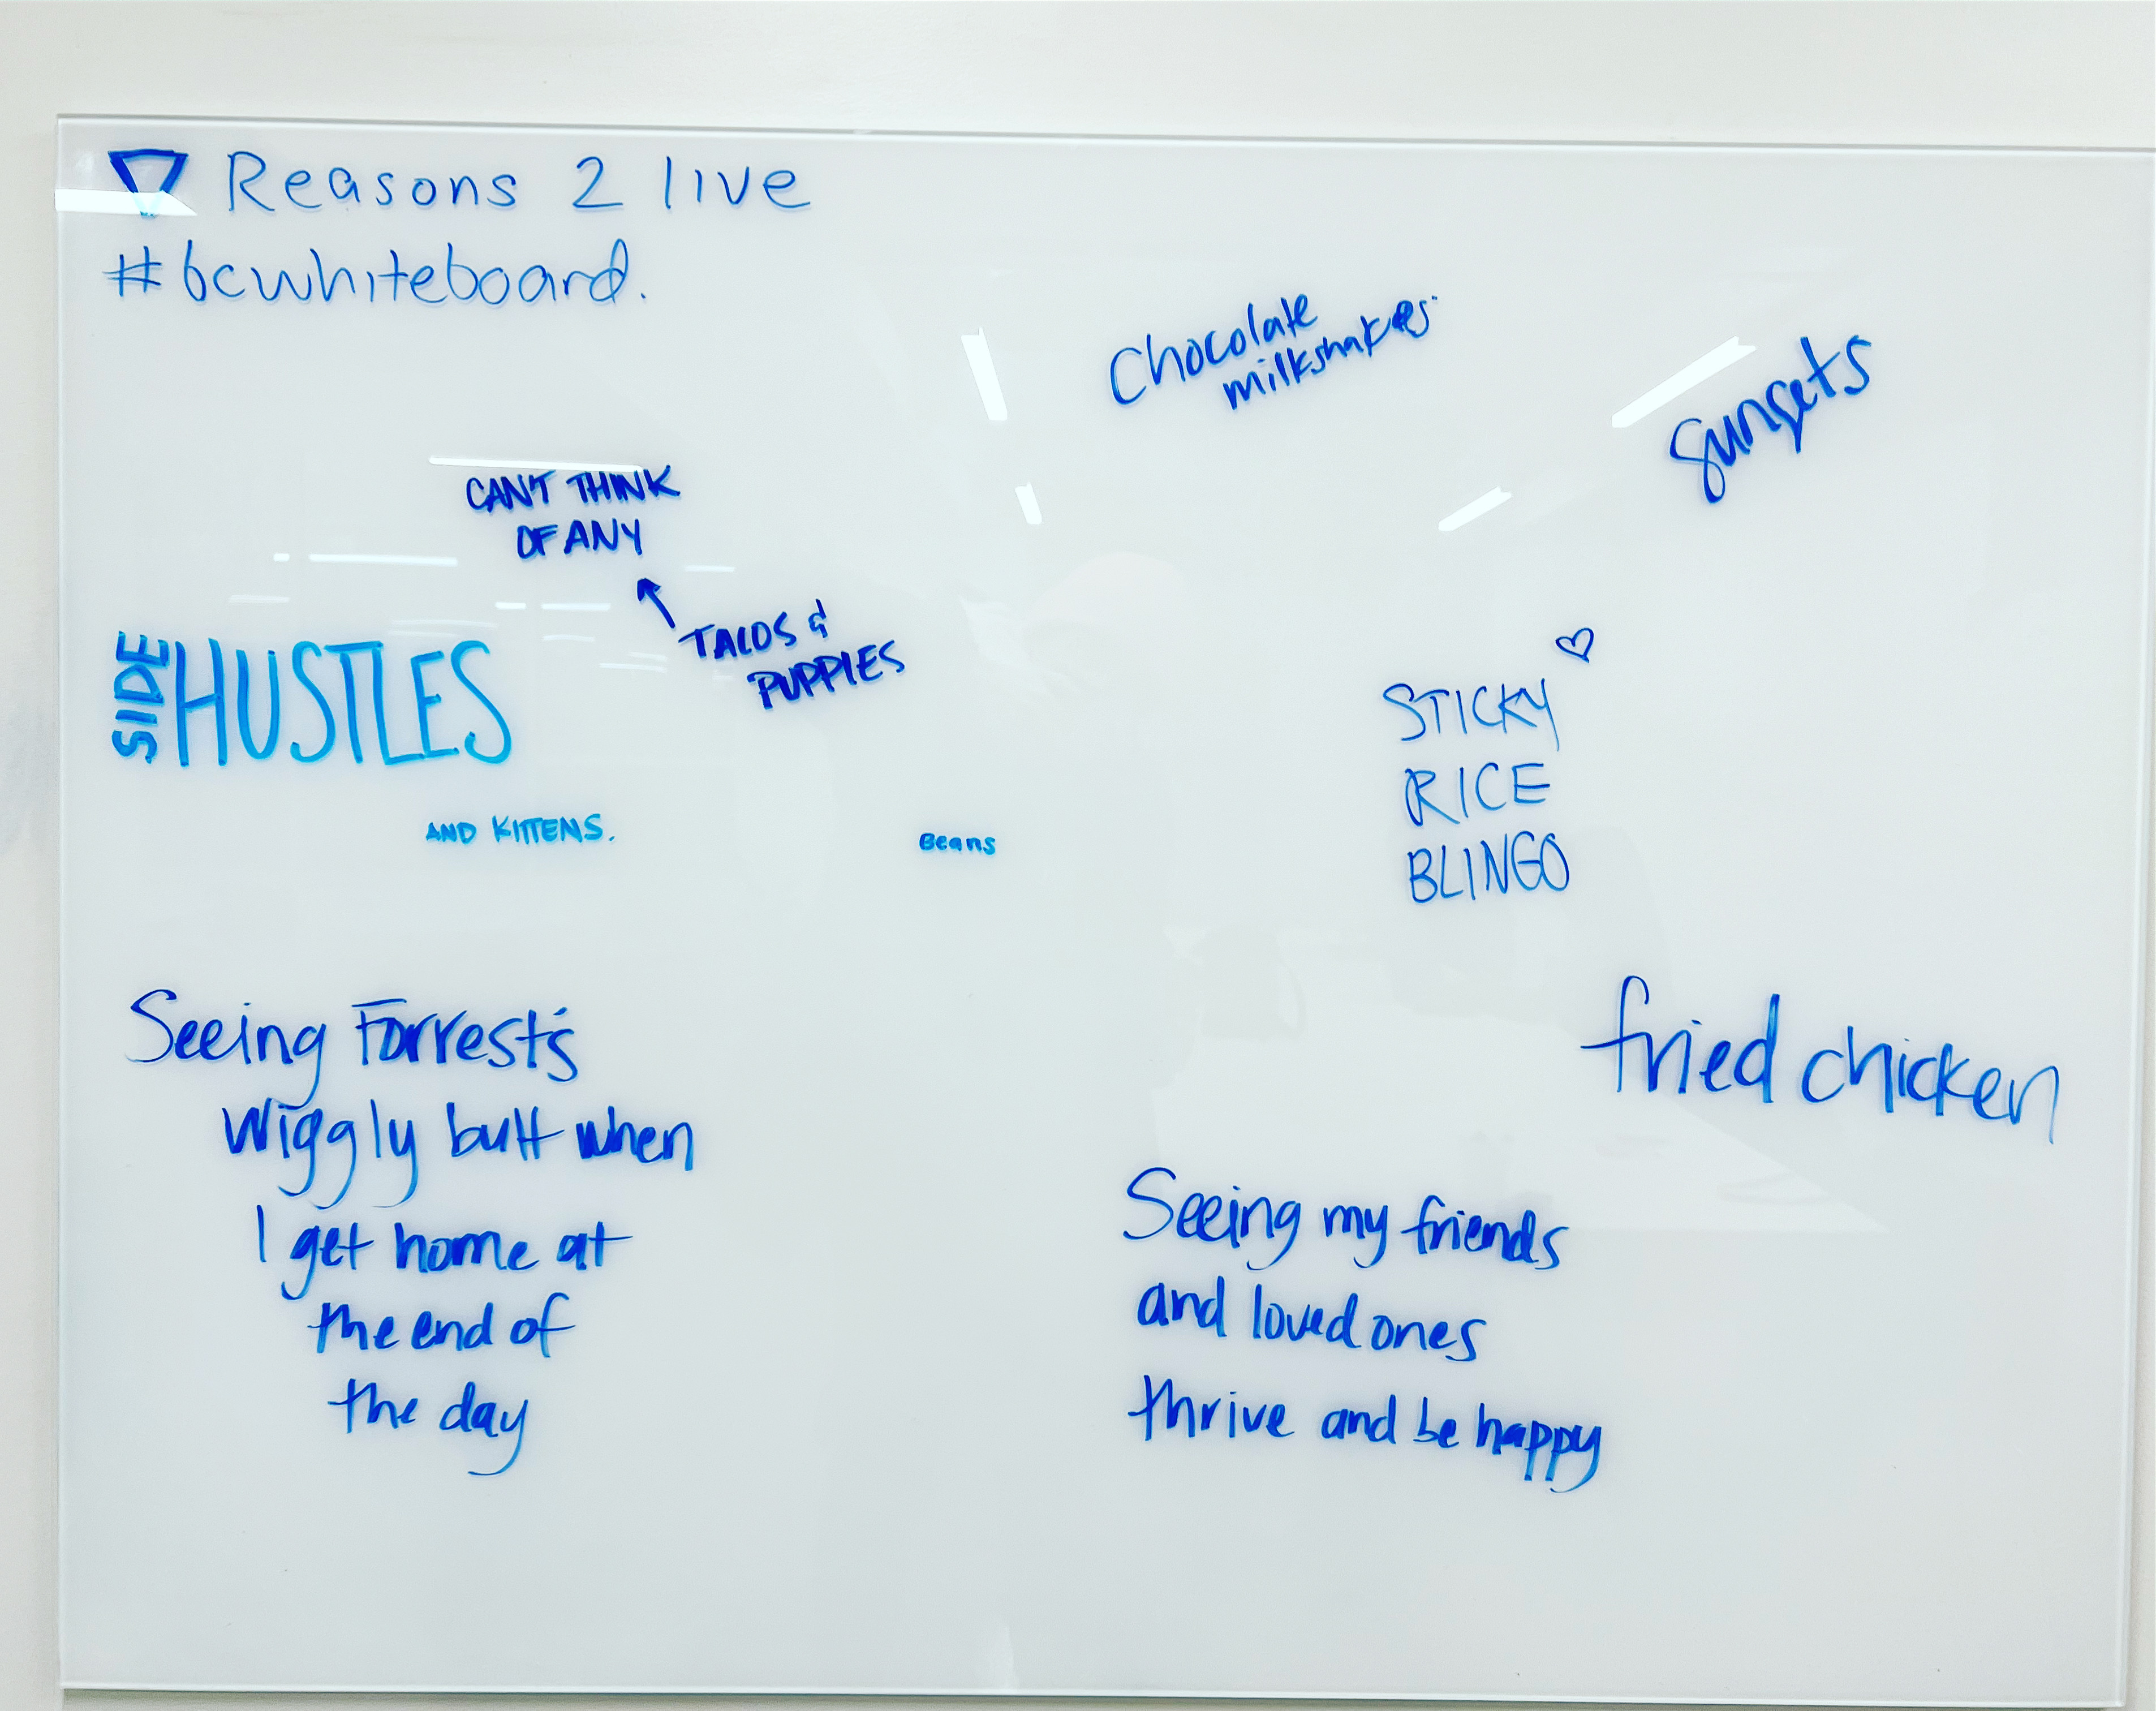 Reasons 2 live
#bcwhiteboard.
Chocolate
milkshakes
sunsets
CAN'T THINK
OF ANY
TACOS &
PUPPIES
SIDE HUSTLES
AND KITTENS.
Beans
STICKY
RICE
BLINGO
Seeing Forrest's
wiggly butt when
I get home at
the end of
the day
fried chicken
Seeing my friends
and loved ones
thrive and be happy